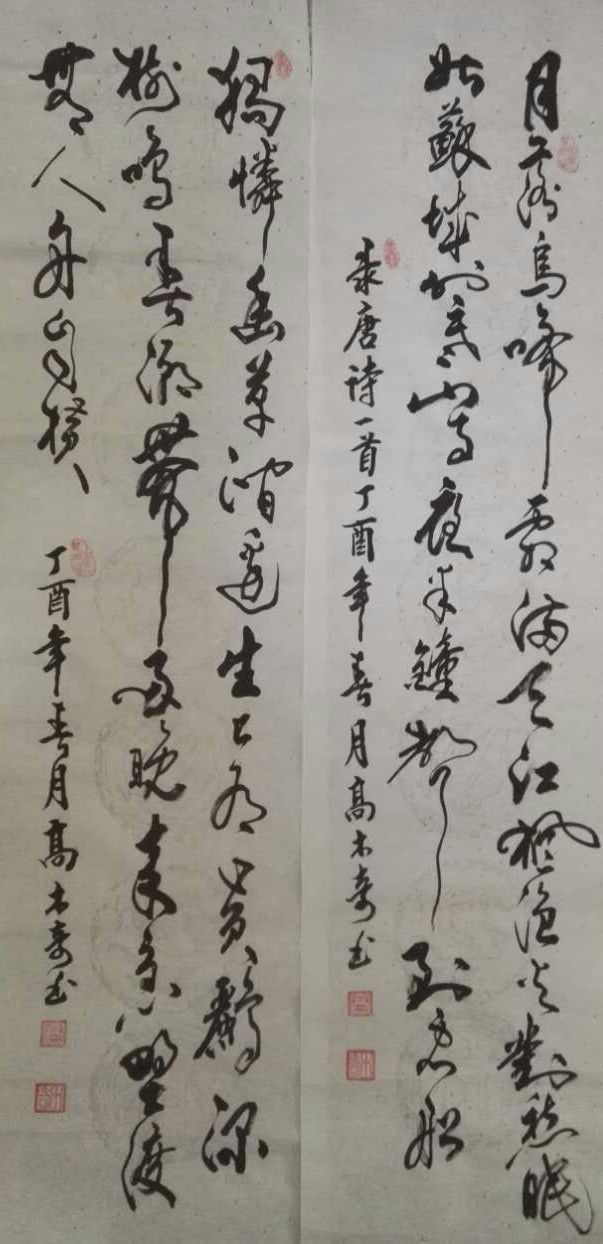 月落烏啼霜满天江楓渔火對愁眠
姑蘇城外寒山寺夜半鐘聲到客船
录唐诗一首丁酉年春月高木奇书
獨憐幽草澗邊生上有黄鸝深
樹鳴春潮帶雨晚来急野渡
無人舟自横
丁酉年春月高木奇书